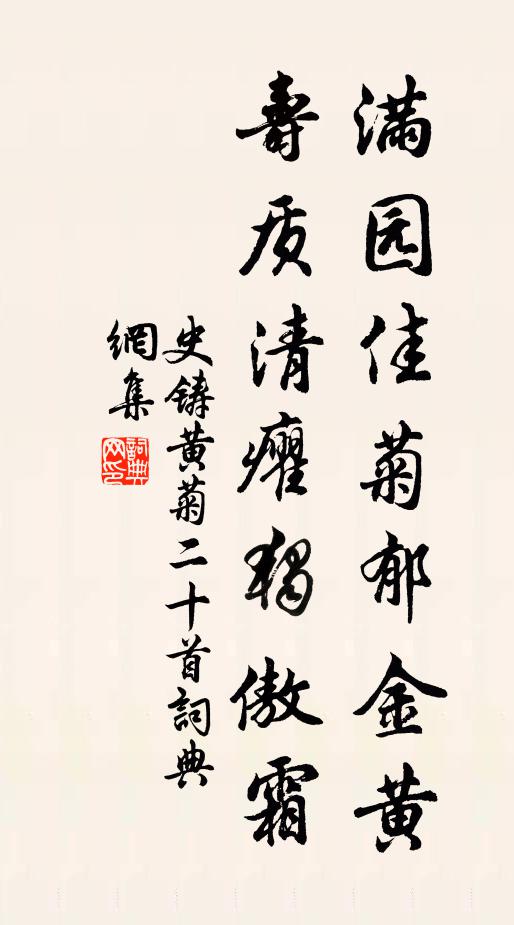 满园佳菊郁金黄
寿质清癯独傲霜
史铸黄菊二十首詞典
網集
詞典网印